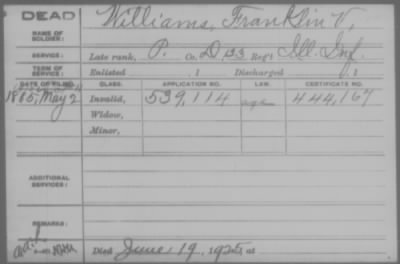 DEAD
Williams, Franklin V.
NAME OF SOLDIER:
SERVICE: Late rank, P. Co. D, 133 Reg't Ill. Inf.
TERM OF SERVICE: Enlisted , 1 Discharged , 1
DATE OF FILING. CLASS. APPLICATION NO. LAW. CERTIFICATE NO.
1885, May 2 Invalid, 539,114 444,167
Widow,
Minor,
ADDITIONAL SERVICES:
REMARKS:
Died June 19, 1925, at